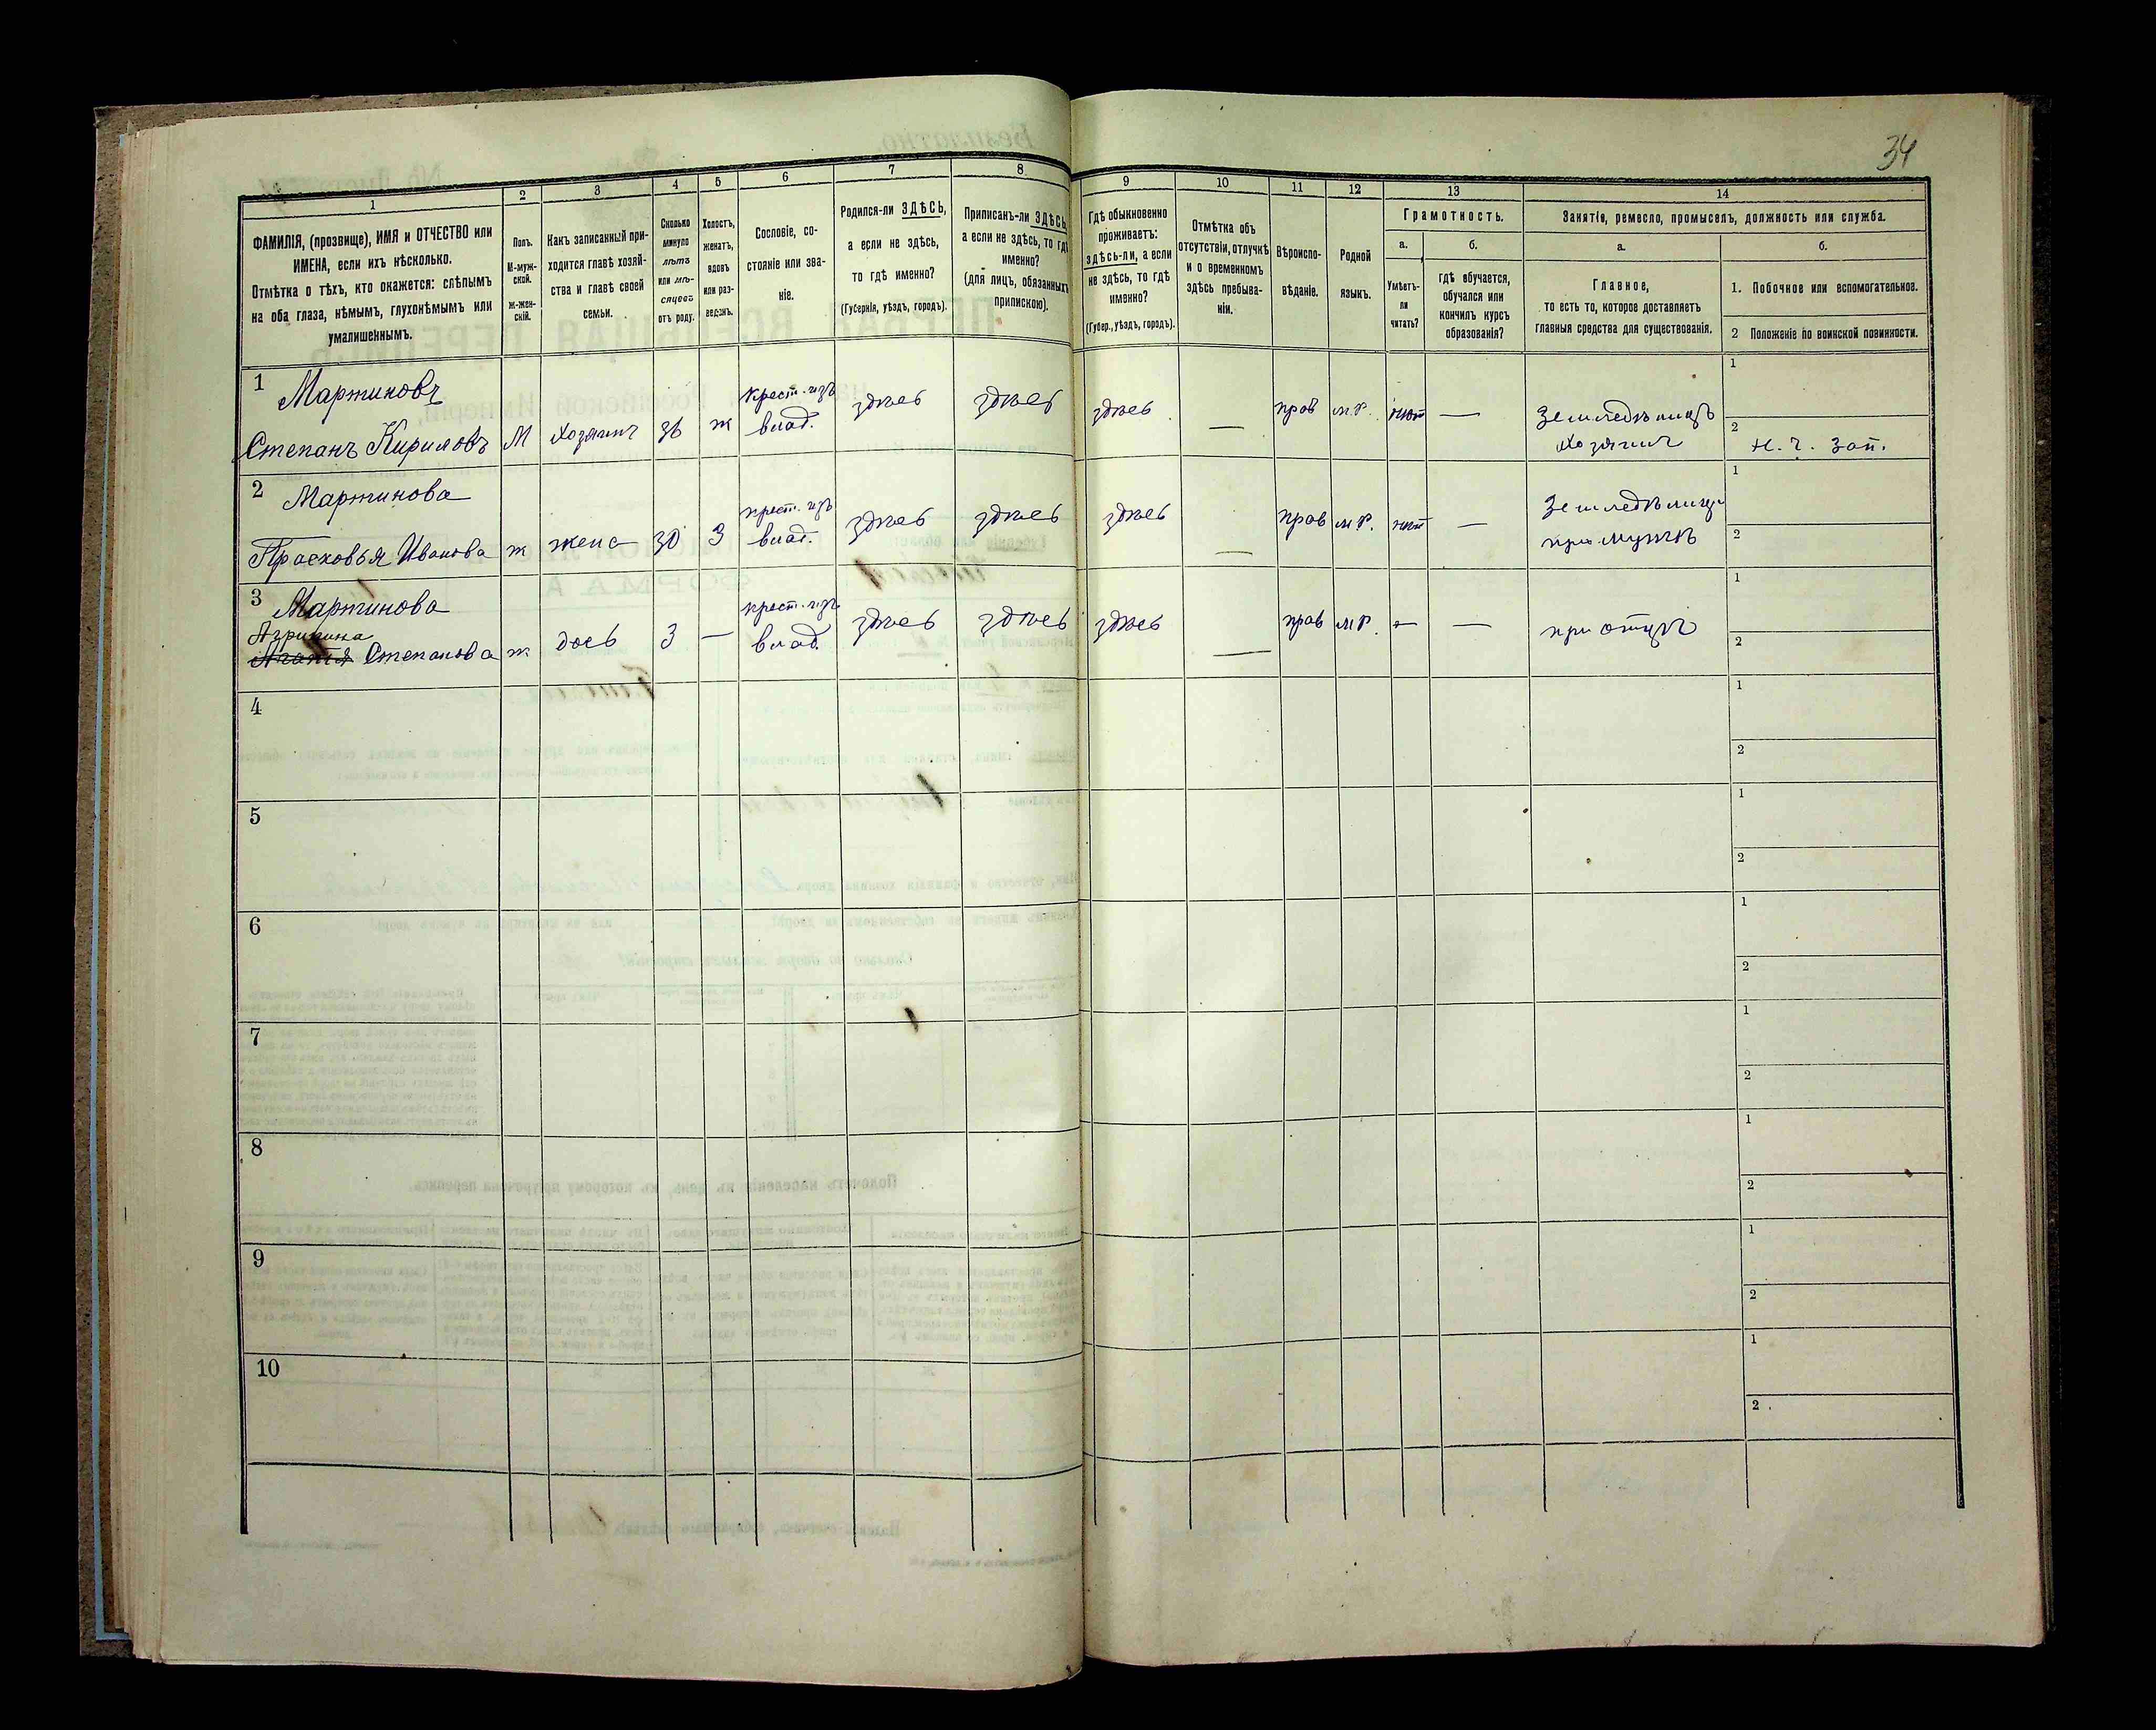 34
1
2
3
4
5
6
7
8
9
10
11
12
13
14
ФАМИЛІЯ, (прозвище), ИМЯ и ОТЧЕСТВО или
ИМЕНА, если ихъ нѣсколько.
Отмѣтка о тѣхъ, кто окажется: слѣпымъ
на оба глаза, нѣмымъ, глухонѣмымъ или
умалишеннымъ.
Полъ.
М-муж-
ской.
Ж-жен-
скій.
Какъ записанный при-
ходится главѣ хозяй-
ства и главѣ своей
семьи.
Сколько
минуло
лѣтъ
или мѣ-
сяцевъ
отъ роду.
Холостъ,
женатъ,
вдовъ
или раз-
веденъ.
Сословіе, со-
стояніе или зва-
ніе.
Родился-ли ЗДѢСЬ,
а если не здѣсь,
то гдѣ именно?
(Губернія, уѣздъ, городъ).
Приписанъ-ли ЗДѢСЬ,
а если не здѣсь, то гдѣ
именно?
(для лицъ, обязанныхъ
припискою).
Гдѣ обыкновенно
проживаетъ:
здѣсь-ли, а если
не здѣсь, то гдѣ
именно?
(Губер., уѣздъ, городъ).
Отмѣтка объ
отсутствіи, отлучкѣ
и о временномъ
здѣсь пребыва-
ніи.
Вѣроиспо-
вѣданіе.
Родной
языкъ.
Грамотность.
а.
б.
Умѣетъ-
ли
читать?
гдѣ обучается,
обучался или
кончилъ курсъ
образованія?
Занятіе, ремесло, промыселъ, должность или служба.
а.
б.
Главное,
то есть то, которое доставляетъ
главныя средства для существованія.
1. Побочное или вспомогательное.
2 Положеніе по воинской повинности.
1 Мартиновъ
Степанъ Кириловъ М хозяинъ 36 ж крест. изъ
влад. здѣсь здѣсь здѣсь — прав м.р. нѣт — Земледѣлецъ
хозяинъ
1
2 н. ч. зап.
2 Мартинова
Прасковья Иванова ж жена 30 З крест. изъ
влад. здѣсь здѣсь здѣсь — прав м.р. нѣт —
при мужѣ
1
2
3 Мартинова
Агрипина
Степанова ж дочь 3 — крест. изъ
влад. здѣсь здѣсь здѣсь — прав м.р. — — при отцѣ
1
2
4
1
2
5
1
2
6
1
2
7
1
2
8
1
2
9
1
2
10
1
2